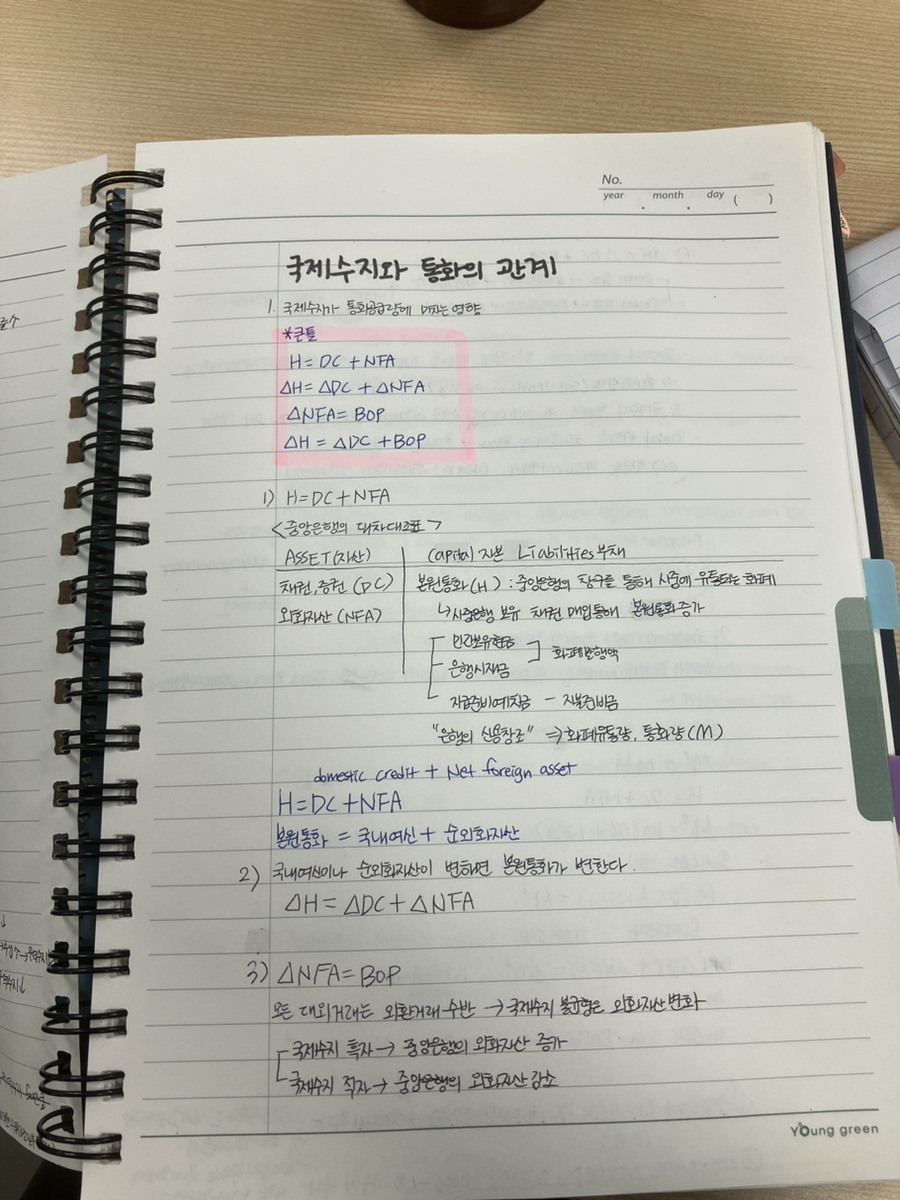 No.
year . month . day ( )
국제수지와 통화의 관계
1. 국제수지가 통화공급량에 미치는 영향
*큰틀
H = DC + NFA
△H = △DC + △NFA
△NFA = BOP
△H = △DC + BOP
1) H = DC + NFA
<중앙은행의 대차대조표>
ASSET (자산) Capital 자본 Liabilities 부채
채권, 증권 (DC) 본원통화 (H) : 중앙은행의 창구를 통해 시중에 유통되는 화폐
외화자산 (NFA) ↳시중은행 보유 채권 매입통해 본원통화 증가
민간보유현금
화폐발행액
은행시재금
지급준비예치금 - 지불준비금
"은행의 신용창조" ⇒ 화폐유통량, 통화량 (M)
domestic credit + Net foreign asset
H = DC + NFA
본원통화 = 국내여신 + 순외화자산
2) 국내여신이나 순외화자산이 변하면 본원통화가 변한다.
△H = △DC + △NFA
3) △NFA = BOP
모든 대외거래는 외환거래 수반 → 국제수지 불균형은 외화자산 변화
국제수지 흑자 → 중앙은행의 외화자산 증가
국제수지 적자 → 중앙은행의 외화자산 감소
Young green